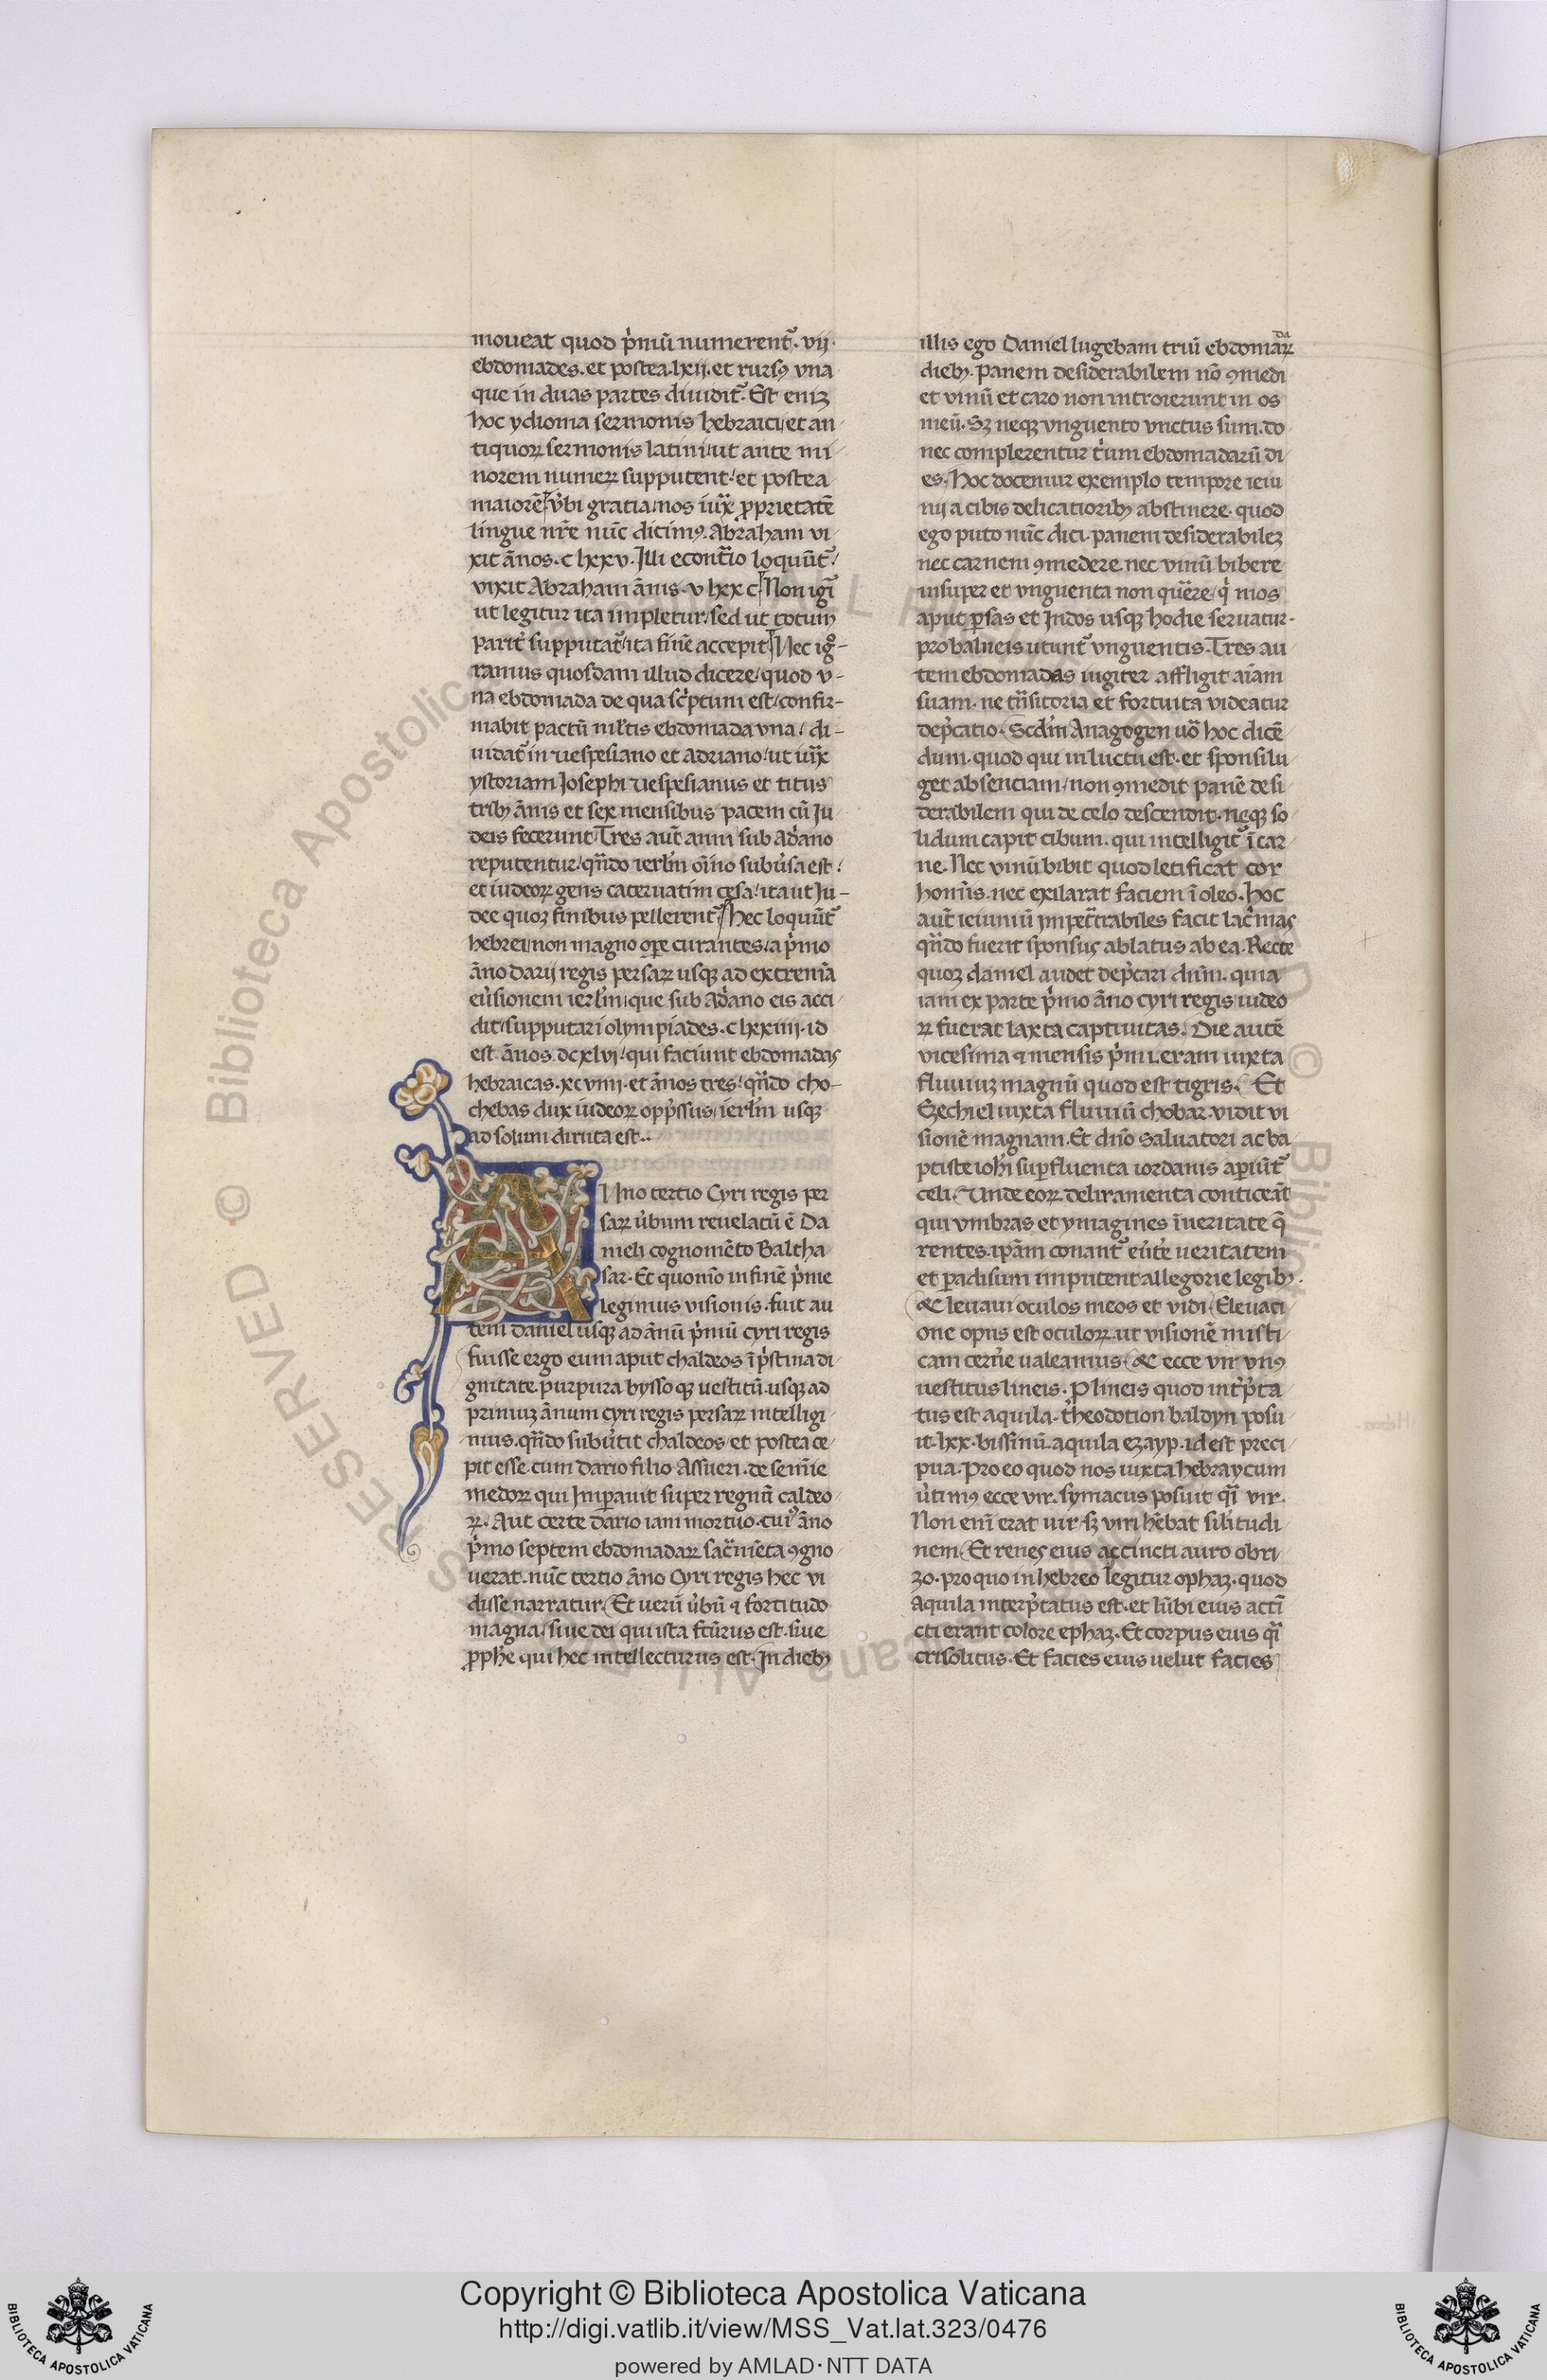 moueat quod p̓mū numerent᷑. vij.
ebdomades. et postea. lxij. et rursꝰ vna
que in duas partes diuidit᷑. Est eniꝫ
hoc ydioma sermonis hebraici/et an/
tiquoꝝ sermonis latini/ut ante mi/
norem numeꝝ supputent᷑/et postea
maiorē. v̓bi gratia/nos iux̄ ꝓprietatē
lingue nr̄e nūc dicimꝰ. Abraham vi/
xit ānos. c lxxv. Illi econt̄io loquūt᷑/
vixit Abraham ānis. v lxx c Non igi᷑
ut legitur ita impletur/sed ut totum
parit̓ supputat᷑/ita finē accepit Nec ig̊-
ramus quosdam illud dicere/quod v-
na ebdomada de qua sc̓ptum est/confir-
mabit pactū ml̓tis ebdomada vna/di-
uidat᷑ in vespesiano et adriano/ut iux̄
ystoriam Josephi vespesianus et titus
tribꝫ ānis et sex mensibus pacem cū Ju
deis fecerunt. Tres aūt anni sub Adr̓ano
reputentur/qn̄do ierl̓m oīno subu̓sa est/
et iudeoꝝ gens cateruatim cesa/ita ut Ju-
dee quoꝫ finibus pellerent᷑ Hec loquūt᷑
hebrei/non magno oꝑe curantes/a p̓mo
āno darij regis persaꝝ usqꝫ ad extremā
eu̓sionem ierl̓m/que sub Adr̓ano eis acci/
dit/supputari olympiades. c lxxiiij. id
est ānos. dcxlvj/qui faciunt ebdomadas
hebraicas. xcviiij. et ānos tres/qn̄do cho-
chebas dux iudeoꝝ opp̓ssus/ierl̓m usqꝫ
ad solum diruta est..
ANno tertio Cyri regis per
saꝝ u̓bum reuelatū ē Da
nieli cognomēto Baltha
sar. Et quomō in finē p̓me
legimus visionis. fuit au
tem daniel usqꝫ ad ānū p̓mū cyri regis
fuisse ergo eum aput chaldeos ī p̓stina di/
gnitate. purpura byssoqꝫ uestitū. usqꝫ ad
primuꝫ ānum cyri regis persaꝝ intelligi/
mus. qn̄do subu̓tit chaldeos/et postea ce/
pit esse. cum dario filio Assueri. de semīe
medoꝝ qui Imperauit super regnū caldeo/
ꝝ. Aut certe dario iam mortuo. cuiꝰ āno
p̓mo septem ebdomadaꝝ sac̄mēta ꝯgno/
uerat. nūc tertio āno Cyri regis hec vi
disse narratur. Et uerū u̓bū ⁊ fortitudo
magna/siue dei qui ista fctūrus est. siue
ꝓphe̅ qui hec intellecturus est. In diebꝫ
illis ego Daniel lugebam triū ebdomadaꝝ
diebꝫ. panem desiderabilem nō ꝯmedi
et vinū et caro non introierunt in os
meū. Sꝫ neqꝫ vnguento vnctus sum. do/
nec complerentur t̓um ebdomadarū di/
es. Hoc docemur exemplo tempore ieiu
nij a cibis delicatioribꝫ abstinere. quod
ego puto nūc dici. panem desiderabileꝫ
nec carnem ꝯmedere. nec vinū bibere
insuper et vnguenta non quere̅/q̓ mos
aput ꝑsas et Indos usqꝫ hodie seruatur.
pro balneis utunt᷑ vnguentis. Tres au
tem ebdomadas iugiter affligit aīam
suam. ne tn̄sitoria et fortuita videatur
dep̓catio. Scd̓m Anagogen uō hoc dicē/
dum. quod qui in luctu est. et sponsi lu/
get absenciam/non ꝯmedit panē desi/
derabilem qui de celo descendit. neqꝫ so/
lidum capit cibum. qui intelligit᷑ ī car/
ne. Nec vinū bibit quod letificat cor
homīs. nec exilarat faciem ī oleo. Hoc
aūt ieiuniū impet̄trabiles facit lac̓mas
qn̄do fuerit sponsus ablatus ab ea. Recte
quoꝫ daniel audet dep̓cari dn̄m. quia
iam ex parte p̓mo āno cyri regis iudeo
ꝝ fuerat laxta captiuitas. Die autē
vicesima ⁊ mensis p̓mi. eram iuxta
fluuiuꝫ magnū quod est tigris. Et
Ezechiel iuxta fluuiū chobar. vidit vi
sionē magnam. Et dn̄o saluatori ac ba/
ptiste ioh̓i suꝑ fluenta iordanis aꝑiūt᷑
celi. Unde eoꝝ deliramenta conticeāt
qui vmbras et ymagines ī ueritate q̄
rentes. ip̄am conant᷑ eu̓te̓ ueritatem
et ꝑadisum imputent allegorie legibꝫ.
et leuaui oculos meos et vidi. Eleuati
one opus est oculoꝝ. ut visionē misti/
cam cern̓e ualeamus. et ecce vir vnꝰ
uestitus lineis. P lineis quod int̓p̓ta
tus est aquila. theodotion baldyn posu/
it. lxx. bissinū. aquila ezayp. id est preci/
pua. Pro eo quod nos iuxta hebraycum
u̓timꝰ ecce vir. symacus posuit qi̅ vir.
Non enī erat uir/sꝫ viri he̅bat sil̓itudi
nem. Et renes eius accincti auro obri/
zo. pro quo in hebreo legitur ophaz. quod
Aquila interp̓tatus est. et lūbi eius acti̅
cti erant colore ephaz. Et corpus eius qi̅
crisolitus. Et facies eius uelut facies
Copyright © Biblioteca Apostolica Vaticana
http://digi.vatlib.it/view/MSS_Vat.lat.323/0476
powered by AMLAD·NTT DATA
BIBLIOTECA APOSTOLICA VATICANA
BIBLIOTECA APOSTOLICA VATICANA